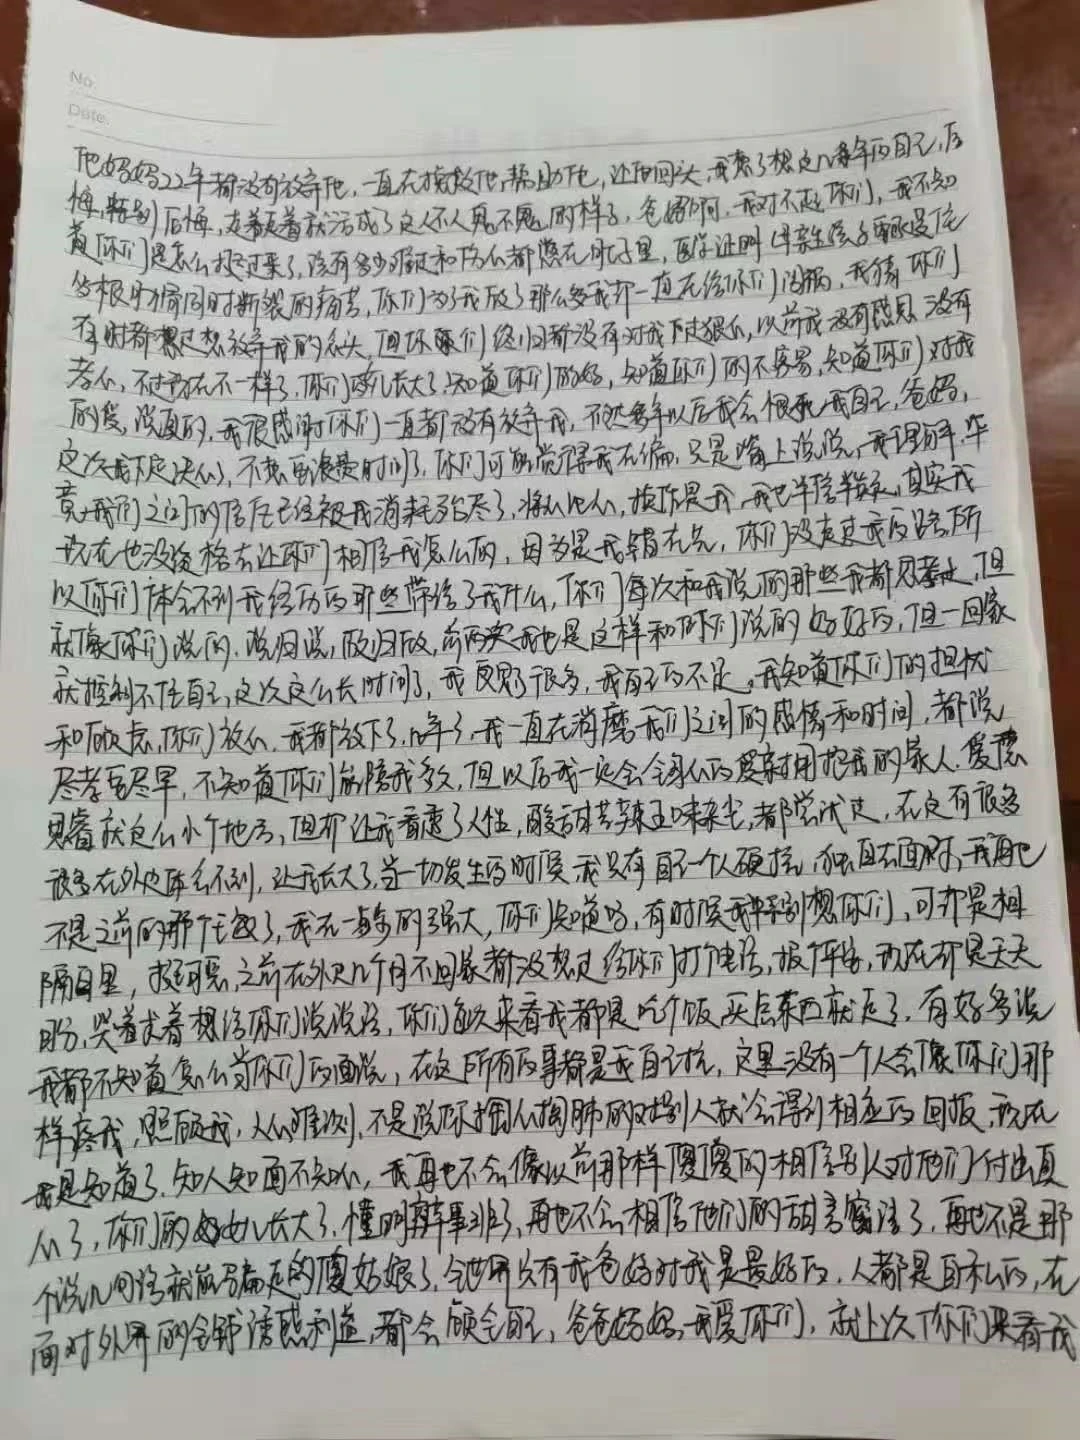 No.
Date.
他妈妈22年都没有放弃他，一直在拯救他，帮助他，让他回头，我想了想这几年的自己，后
悔，特别后悔，走着走着就活成了这人不人鬼不鬼的样子，爸妈啊，我对不起你们，我不知
道你们是怎么挺过来了，该有多少难过和伤心都憋在肚子里，医学证明母亲生孩子
根肋骨同时断裂的痛苦，你们为了我放了那么多我却一直在给你们闯祸，我猜你们
有时都想过想放弃我的念头，但你们终归都没有对我下过狠心，以前我没有感恩没有
孝心，不过现在不一样了，你们女儿长大了，知道你们的好，知道你们的不容易，知道你们对我
的爱，说真的，我很感谢你们一直都没有放弃我，不然多年以后我会恨死我自己，爸妈，
这次我下定决心，不想再浪费时间了，你们可能觉得我在编，只是嘴上说说，我理解，毕
竟我们之间的信任已经被我消耗殆尽了，将心比心，换作是我，我也半信半疑，其实我
现在也没资格去让你们相信我怎么的，因为是我错在先，你们没走过我的路所
以你们体会不到我经历的那些带给了我什么，你们每次和我说的那些我都思考过，但
就像你们说的，说归说，做归做，前两次我也是这样和你们说的好好的，但一回家
就控制不住自己，这次这么长时间了，我反思了很多，我自己的不足，我知道你们的担忧
和顾虑，你们放心，我都放下了，几年了，我一直在消磨我们之间的感情和时间，都说
尽孝要尽早，不知道你们能陪我多久，但以后我一定会全身心的爱护拥抱我的家人，爱德
就这么小个地方，但却让我看透了人性，酸甜苦辣五味杂尘，都尝试过，在这有很多
很多在外边体会不到，让我长大了，当一切发生的时候我只有自己一个人硬抗，独自去面对，我再也
不是之前的那个了，我在一步步的强大，你们知道吗，有时候我特别想你们，可却是相
隔百里，挺可悲，之前在外边几个月不回家都没想过给你们打个电话，报个平安，现在却是天天
盼，哭着求着想给你们说说话，你们每次来看我都是吃个饭买点东西就走了，有好多话
我都不知道怎么当你们的面说，在这所有的事都是我自己抗，这里没有一个人会像你们那
样疼我，照顾我，人心难测，不是说你掏心掏肺的对别人就会得到相应的回报，现在
我是知道了，知人知面不知心，我再也不会像以前那样傻傻的相信别人对他们付出真
心了，你们的女儿长大了，懂明辨事非了，再也不会相信他们的甜言蜜语了，再也不是那
个说几句话就能骗走的傻姑娘了，全世界只有我爸妈对我是最好的，人都是自私的，在
面对外界的金钱诱惑利益，都会顾全自己，爸爸妈妈，我爱你们，就上次你们来看我